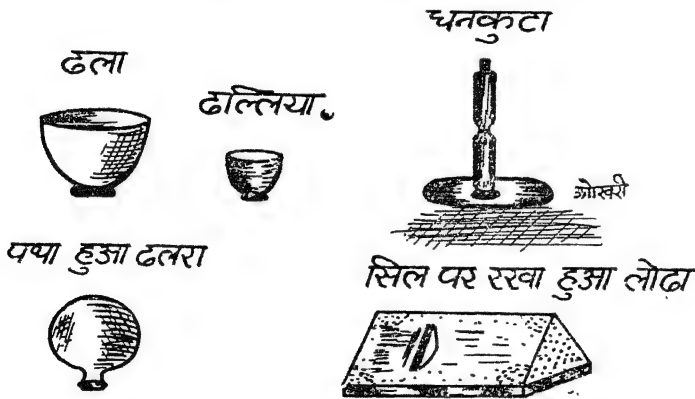 ढला
ढल्लिया.
धनकुटा
ओखरी
पथा हुआ ढलरा
सिल पर रखा हुआ लोढ़ा